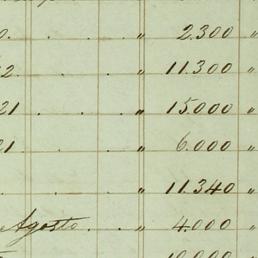 0. . . . " 2.300 "
2. . . . " 11.300 "
21 . . . " 15.000 "
21. . . . " 6.000 "
. . . " 11.340 "
Agosto. . . " 4.000 "
10.000